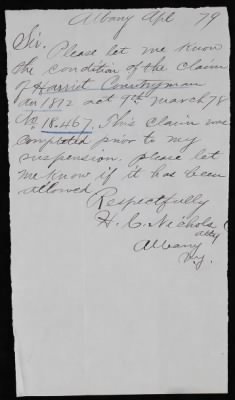 Albany Apl 79
Sir.
Please let me know
the condition of the claim
of Harriet Countryman
War 1812 act 9th March 78
No 18.467. This claim was
completed prior to my
suspension. please let
me know if it has been
allowed
Respectfully
H. C. Nichols
atty
Albany
N.y.